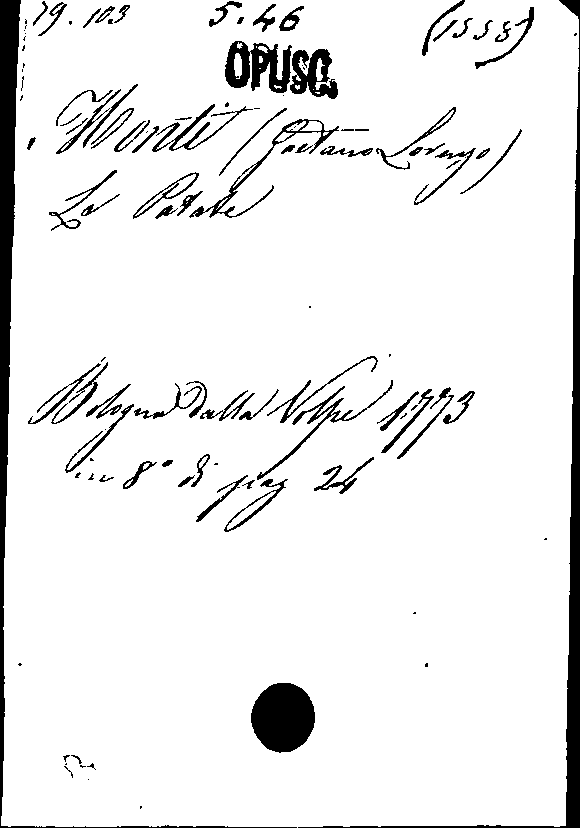 79. 103 5.46 (1558)
OPUSC.
Monti (Gaetano Lorenzo)
Le Patate
Bologna Dalla Volpe 1773
in 8° di pag 24